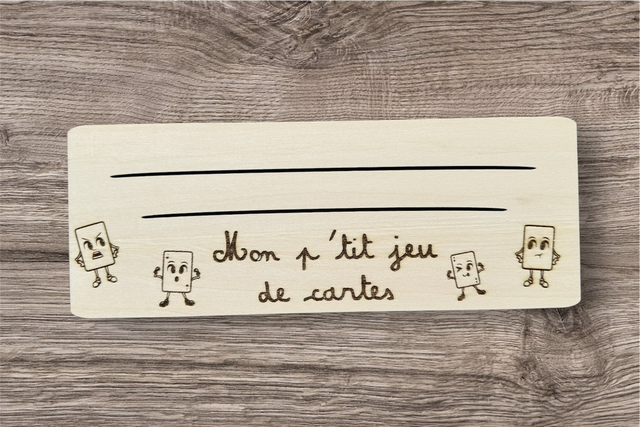 Mon p'tit jeu
de cartes